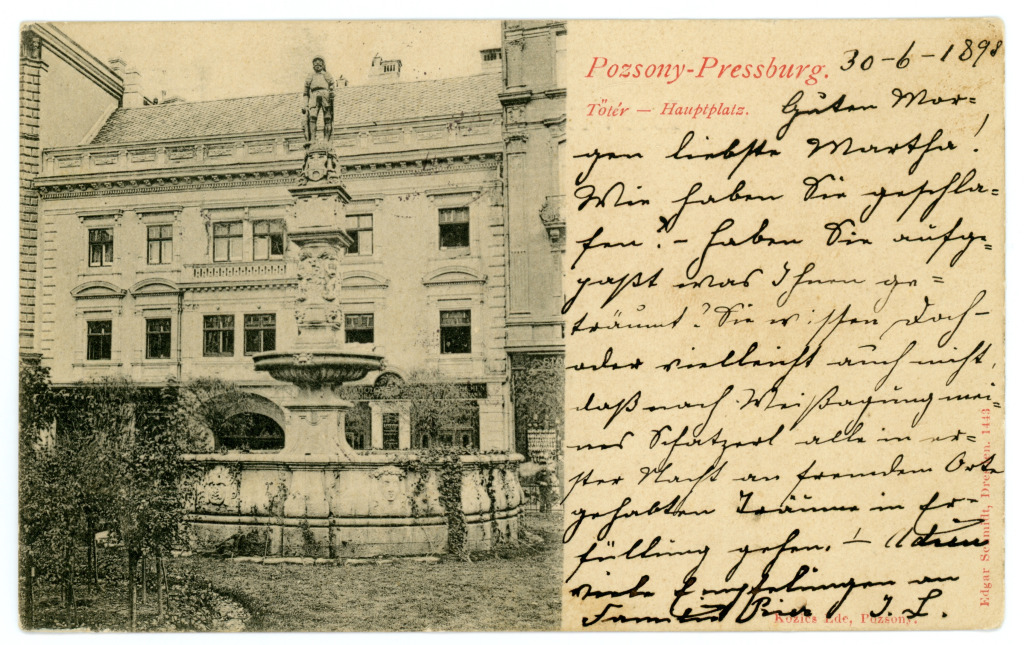 Pozsony-Pressburg.
30-6-1898
Főtér — Hauptplatz.
Guten Mor=
gen liebste Martha!
Wie haben Sie geschla=
fen? - haben Sie aufge=
paßt was Ihnen ge=
träumt? Sie wissen doch -
oder vielleicht auch nicht,
daß nach Weißagung mei=
nes Schatzerl alle in er=
ster Nacht an fremdem Orte
gehabten Träume in Er=
füllung gehen. - Adieu
viele Empfelungen an
Familie J. L.
Kozics Ede, Pozsony.
Edgar Schmidt, Dresden. 1443